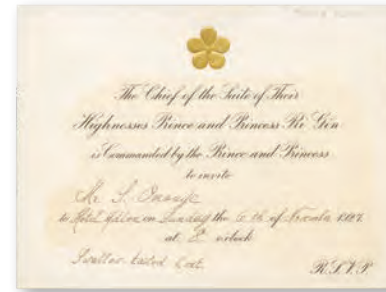 The Chief of the Suite of Their
Highnesses Prince and Princess Ri Gin
is Commanded by the Prince and Princess
to invite
Mr S.
to Hotel on Sunday the th of 1927
at 8 o'clock
Swallow tailed Coat.
R.S.V.P.